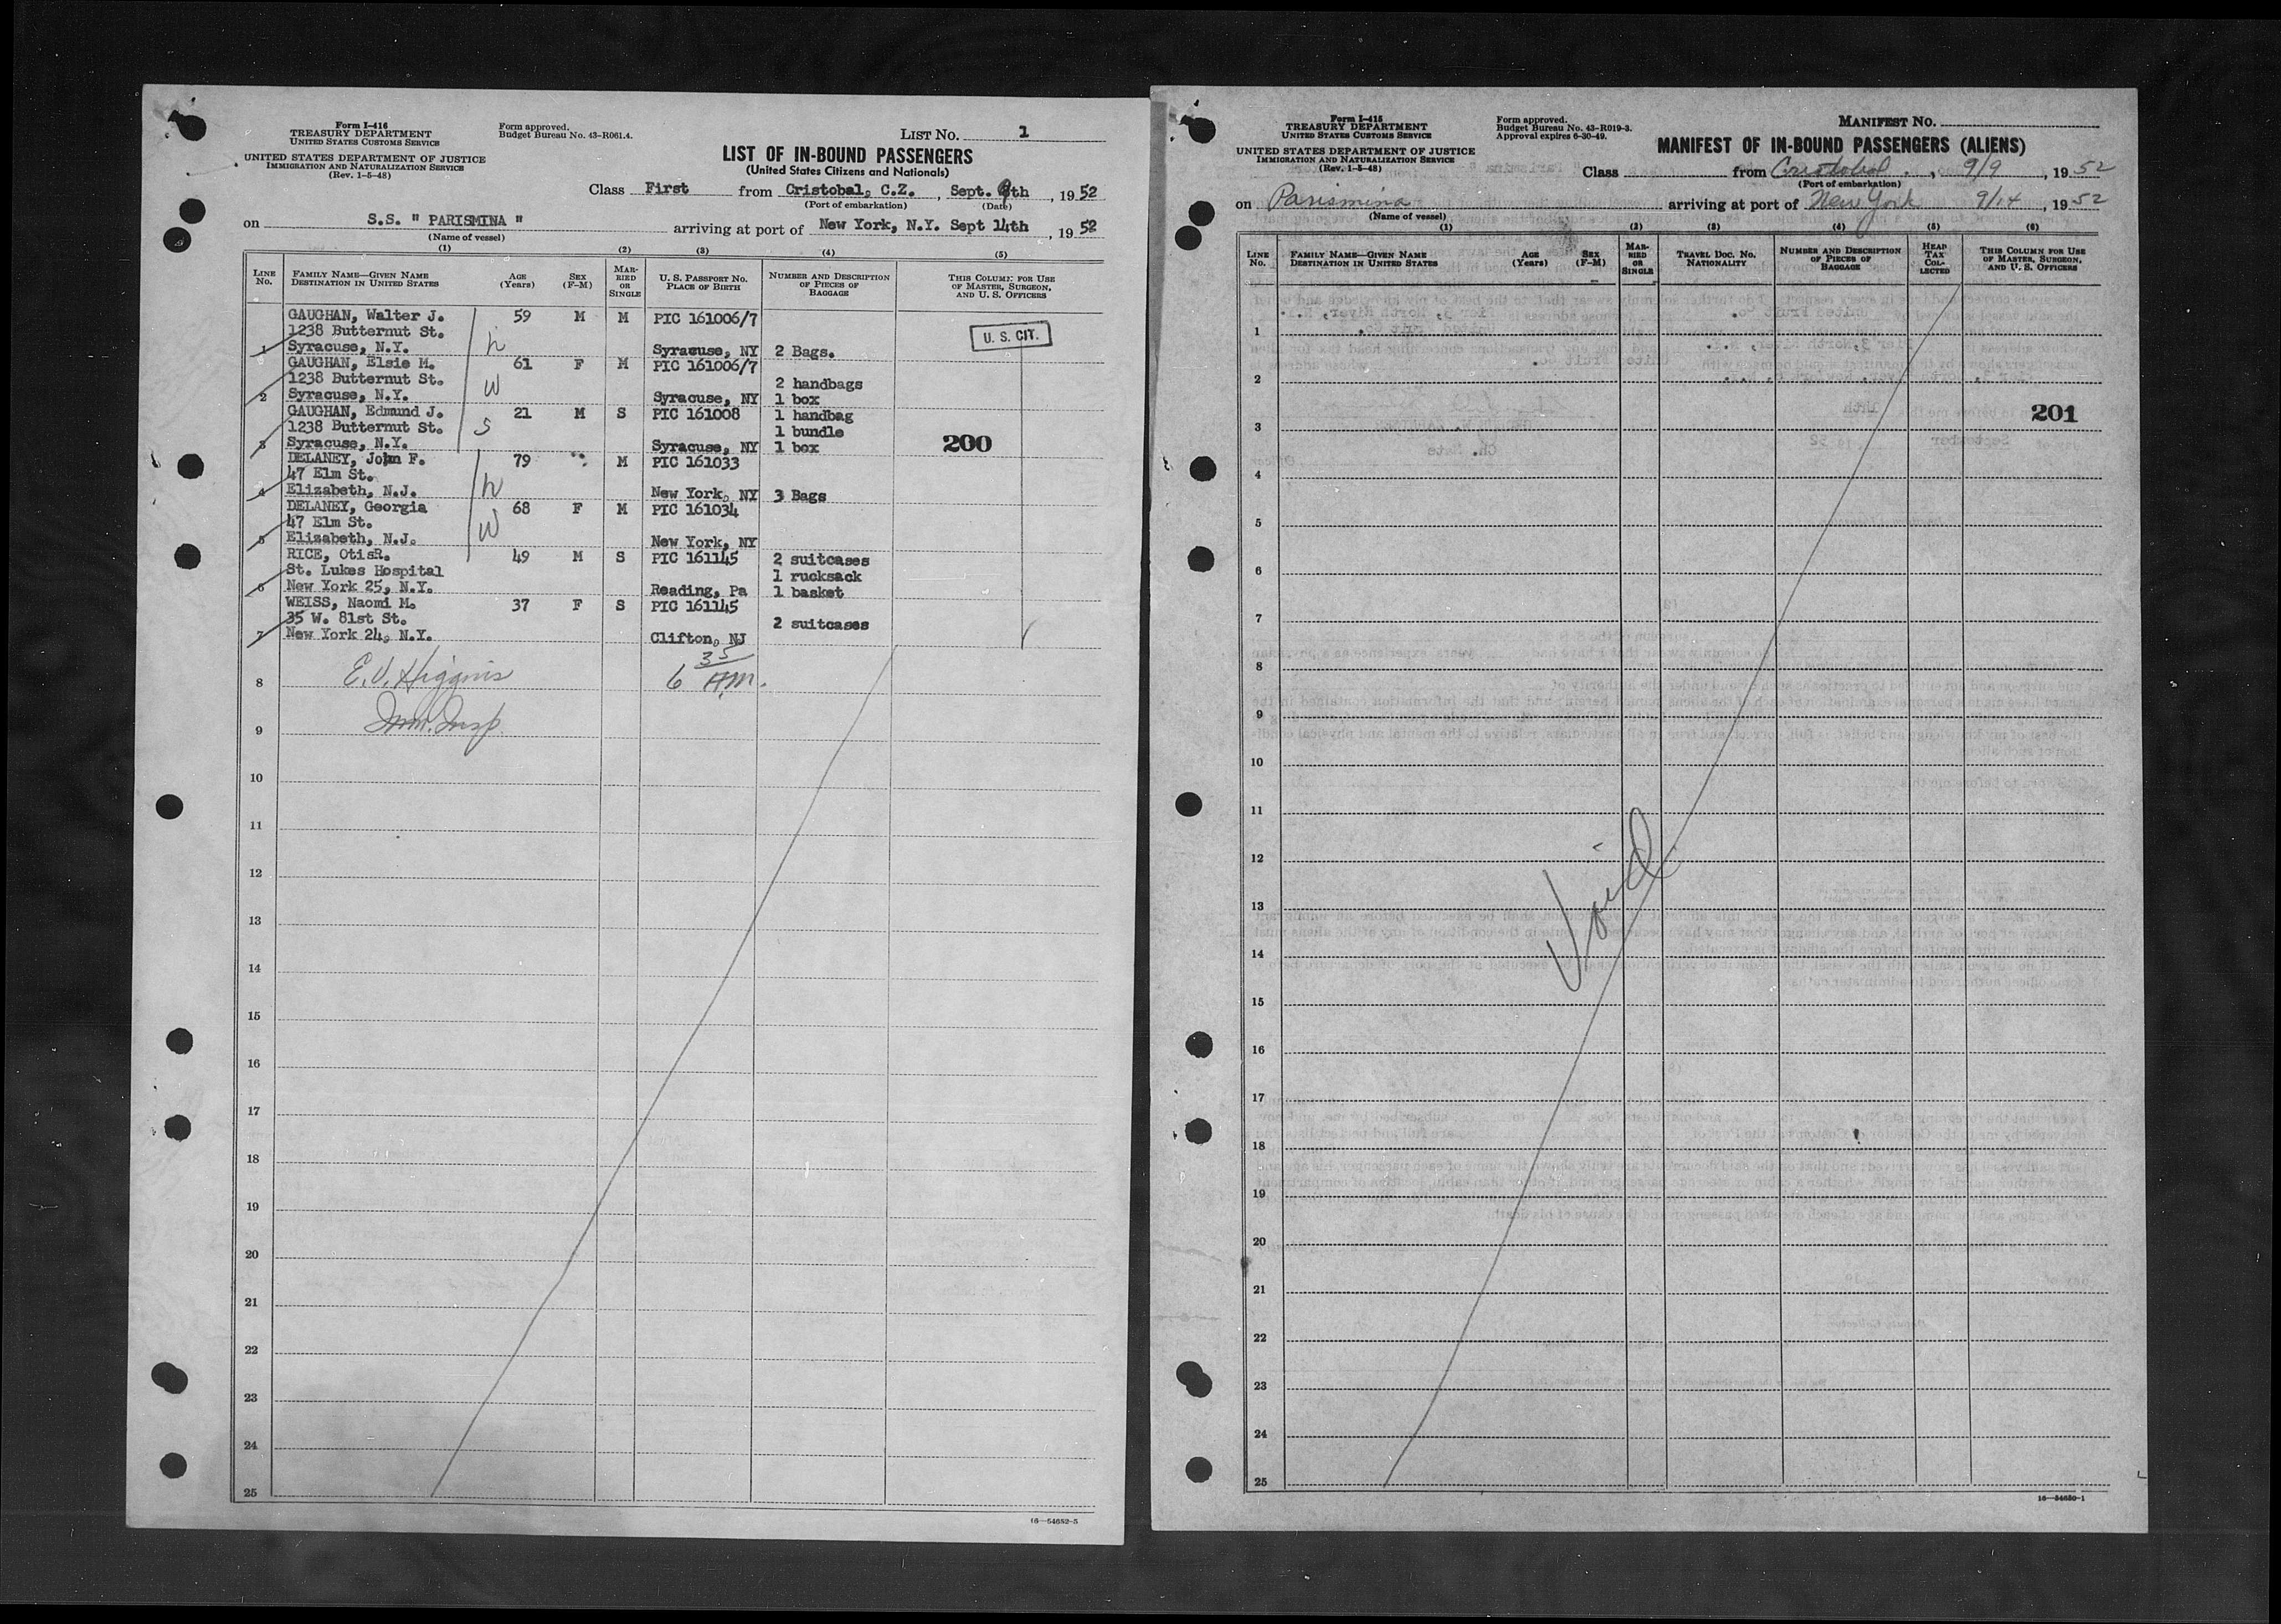 Form I-416
TREASURY DEPARTMENT
UNITED STATES CUSTOMS SERVICE
UNITED STATES DEPARTMENT OF JUSTICE
IMMIGRATION AND NATURALIZATION SERVICE
(Rev. 1-5-48)
Form approved.
Budget Bureau No. 43-R061.4.
LIST No. 1
LIST OF IN-BOUND PASSENGERS
(United States Citizens and Nationals)
Class First from Cristobal, C.Z., Sept. 9th, 1952
(Port of embarkation) (Date)
on S.S. " PARISMINA " arriving at port of New York, N.Y. Sept 14th, 1952
(Name of vessel)
(1) (2) (3) (4) (5)
LINE No. FAMILY NAME—GIVEN NAME DESTINATION IN UNITED STATES AGE (Years) SEX (F-M) MARRIED OR SINGLE U. S. PASSPORT NO. PLACE OF BIRTH NUMBER AND DESCRIPTION OF PIECES OF BAGGAGE THIS COLUMN FOR USE OF MASTER, SURGEON, AND U. S. OFFICERS
GAUGHAN, Walter J. 59 M M PIC 161006/7
1238 Butternut St. h U. S. CIT.
1 Syracuse, N.Y. Syracuse, NY 2 Bags.
GAUGHAN, Elsie M. 61 F M PIC 161006/7
1238 Butternut St. W 2 handbags
2 Syracuse, N.Y. Syracuse, NY 1 box
GAUGHAN, Edmund J. 21 M S PIC 161008 1 handbag
1238 Butternut St. S 1 bundle
3 Syracuse, N.Y. Syracuse, NY 1 box 200
DELANEY, John F. 79 M PIC 161033
47 Elm St. h
4 Elizabeth, N.J. New York, NY 3 Bags
DELANEY, Georgia 68 F M PIC 161034
47 Elm St. W
5 Elizabeth, N.J. New York, NY
RICE, OtisR. 49 M S PIC 161145 2 suitcases
St. Lukes Hospital 1 rucksack
6 New York 25, N.Y. Reading, Pa 1 basket
WEISS, Naomi M. 37 F S PIC 161145
35 W. 81st St. 2 suitcases
7 New York 24, N.Y. Clifton, NJ
8 E.V. Higgins 6 35 A.M.
9 Imm. Insp.
10
11
12
13
14
15
16
17
18
19
20
21
22
23
24
25
16—54652-5
Form I-415
TREASURY DEPARTMENT
UNITED STATES CUSTOMS SERVICE
UNITED STATES DEPARTMENT OF JUSTICE
IMMIGRATION AND NATURALIZATION SERVICE
(Rev. 1-5-48)
Form approved.
Budget Bureau No. 43-R019-3.
Approval expires 6-30-49.
MANIFEST No.
MANIFEST OF IN-BOUND PASSENGERS (ALIENS)
Class from Cristobal, 9/9, 1952
(Port of embarkation)
on Parismina arriving at port of New York 9/14, 1952
(Name of vessel)
(1) (2) (3) (4) (5) (6)
LINE No. FAMILY NAME—GIVEN NAME DESTINATION IN UNITED STATES AGE (Years) SEX (F-M) MARRIED OR SINGLE TRAVEL DOC. NO. NATIONALITY NUMBER AND DESCRIPTION OF PIECES OF BAGGAGE HEAD TAX COLLECTED THIS COLUMN FOR USE OF MASTER, SURGEON, AND U. S. OFFICERS
1
2
201
3
4
5
6
7
8
9
10
11
12
Void
13
14
15
16
17
18
19
20
21
22
23
24
25
16—54650-1